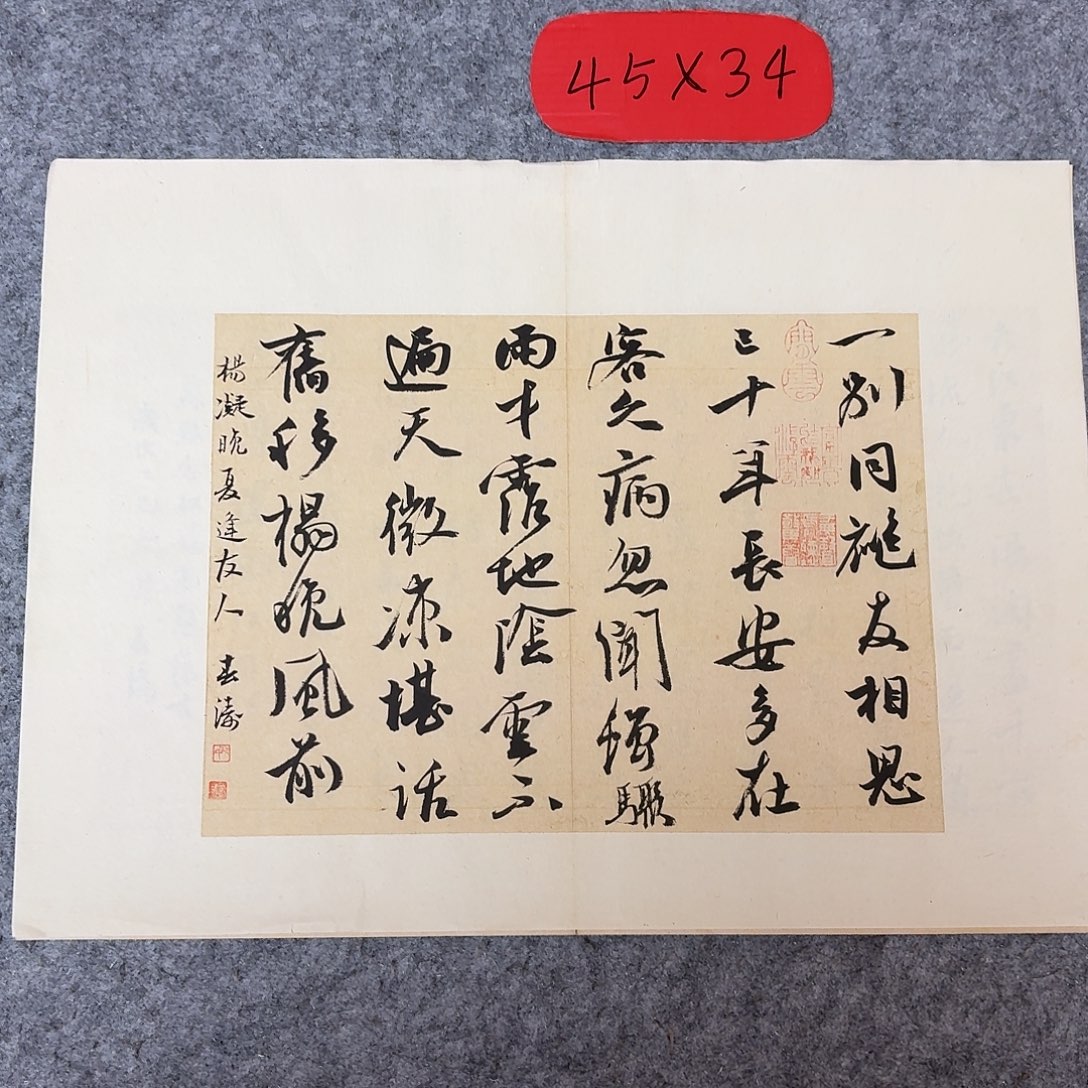 45X34
一别同袍友相思
已十年長安多在
客久病忽聞蟬驟
雨才霑地陰雲不
遍天微凉堪話
舊移榻晚風前
楊凝晚夏逢友人 春濤